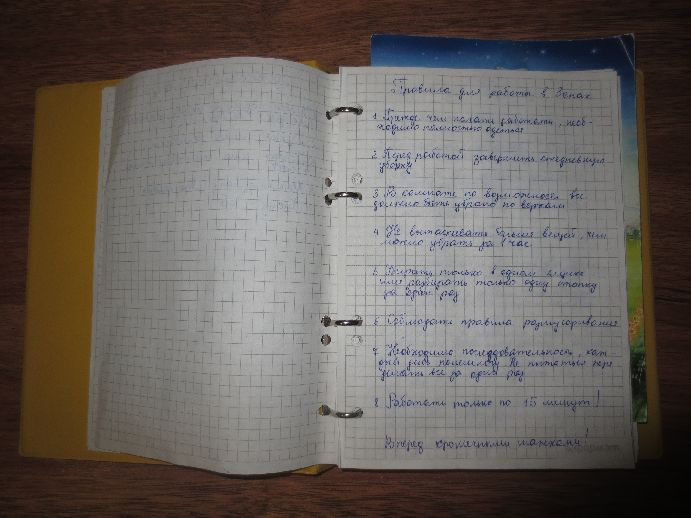 Правила для работы в Зонах
1. Прежде чем начать работать, необ-
ходимо полностью одеться
2. Перед работой завершить ежедневную
уборку
3. В комнате по возможности все
должно быть убрано по верхам
4. Не вытаскивать больше вещей, чем
можно убрать за 1 час.
5. Убирать только в одном ящике
или разбирать только одну стопку
за один раз
6. Соблюдать правила размусоривания
7. Необходима последовательность, каж-
дый день понемногу. Не пытаться пере
делать все за один раз
8. Работать только по 15 минут!
Вперед крошечными шажками!